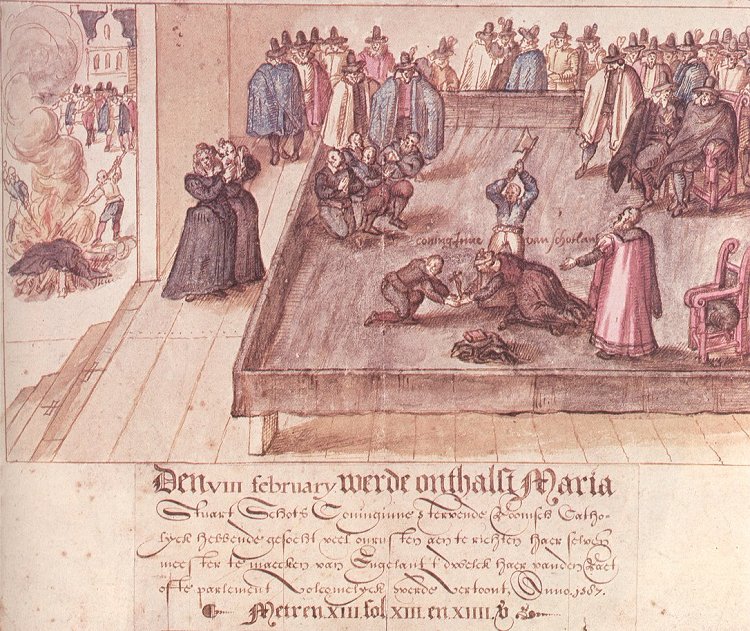 coninginne van schotlant
Den VIII february werde onthalst Maria
Stuart Schots Coninginne stervende Roomsch Catho-
lyck hebbende gesocht veel onrusten aen te richten haer selven
meester te maecken van Engelant t'dwelck haer vanden Raet
ofte parlement Volcomelyck werde vertoont, Anno. 1587.
Meteren XIII. fol. XIII. en XIIII. b